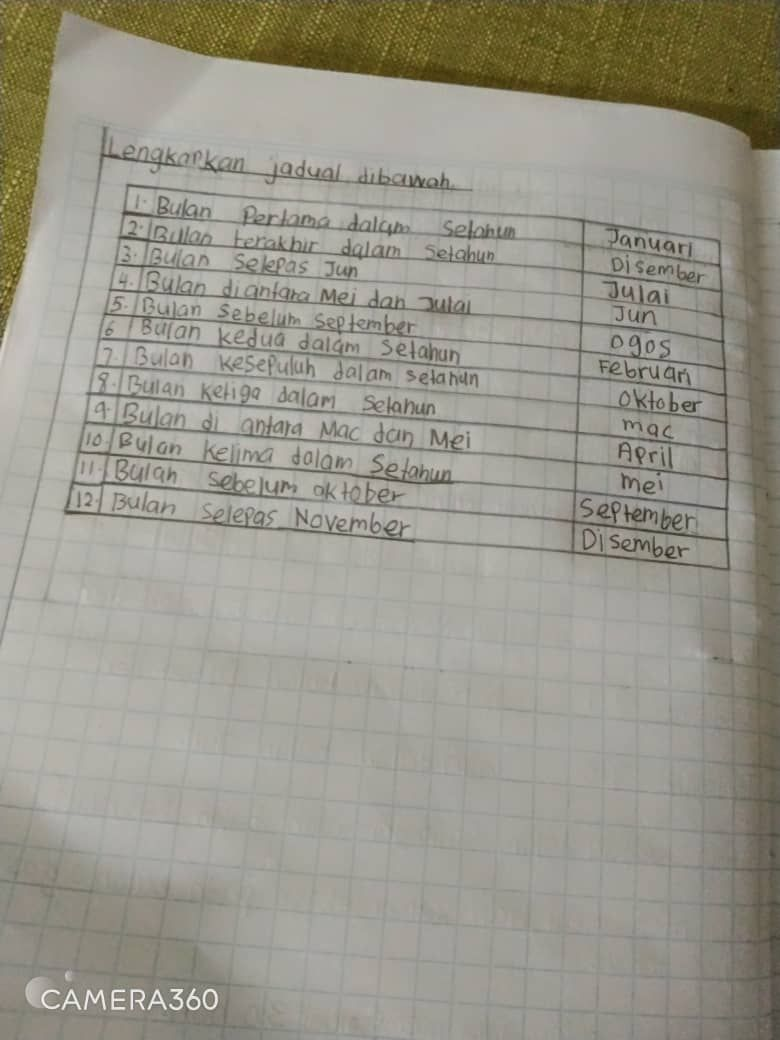 Lengkapkan jadual dibawah.
1. Bulan Pertama dalam Setahun Januari
2. Bulan terakhir dalam Setahun Disember
3. Bulan Selepas Jun Julai
4. Bulan diantara Mei dan Julai Jun
5. Bulan Sebelum September Ogos
6 Bulan kedua dalam Setahun Februari
7. Bulan kesepuluh dalam setahun Oktober
8. Bulan ketiga dalam Setahun mac
9. Bulan di antara Mac dan Mei April
10. Bulan kelima dalam Setahun mei
11. Bulan Sebelum oktober September
12. Bulan Selepas November Disember
CAMERA360